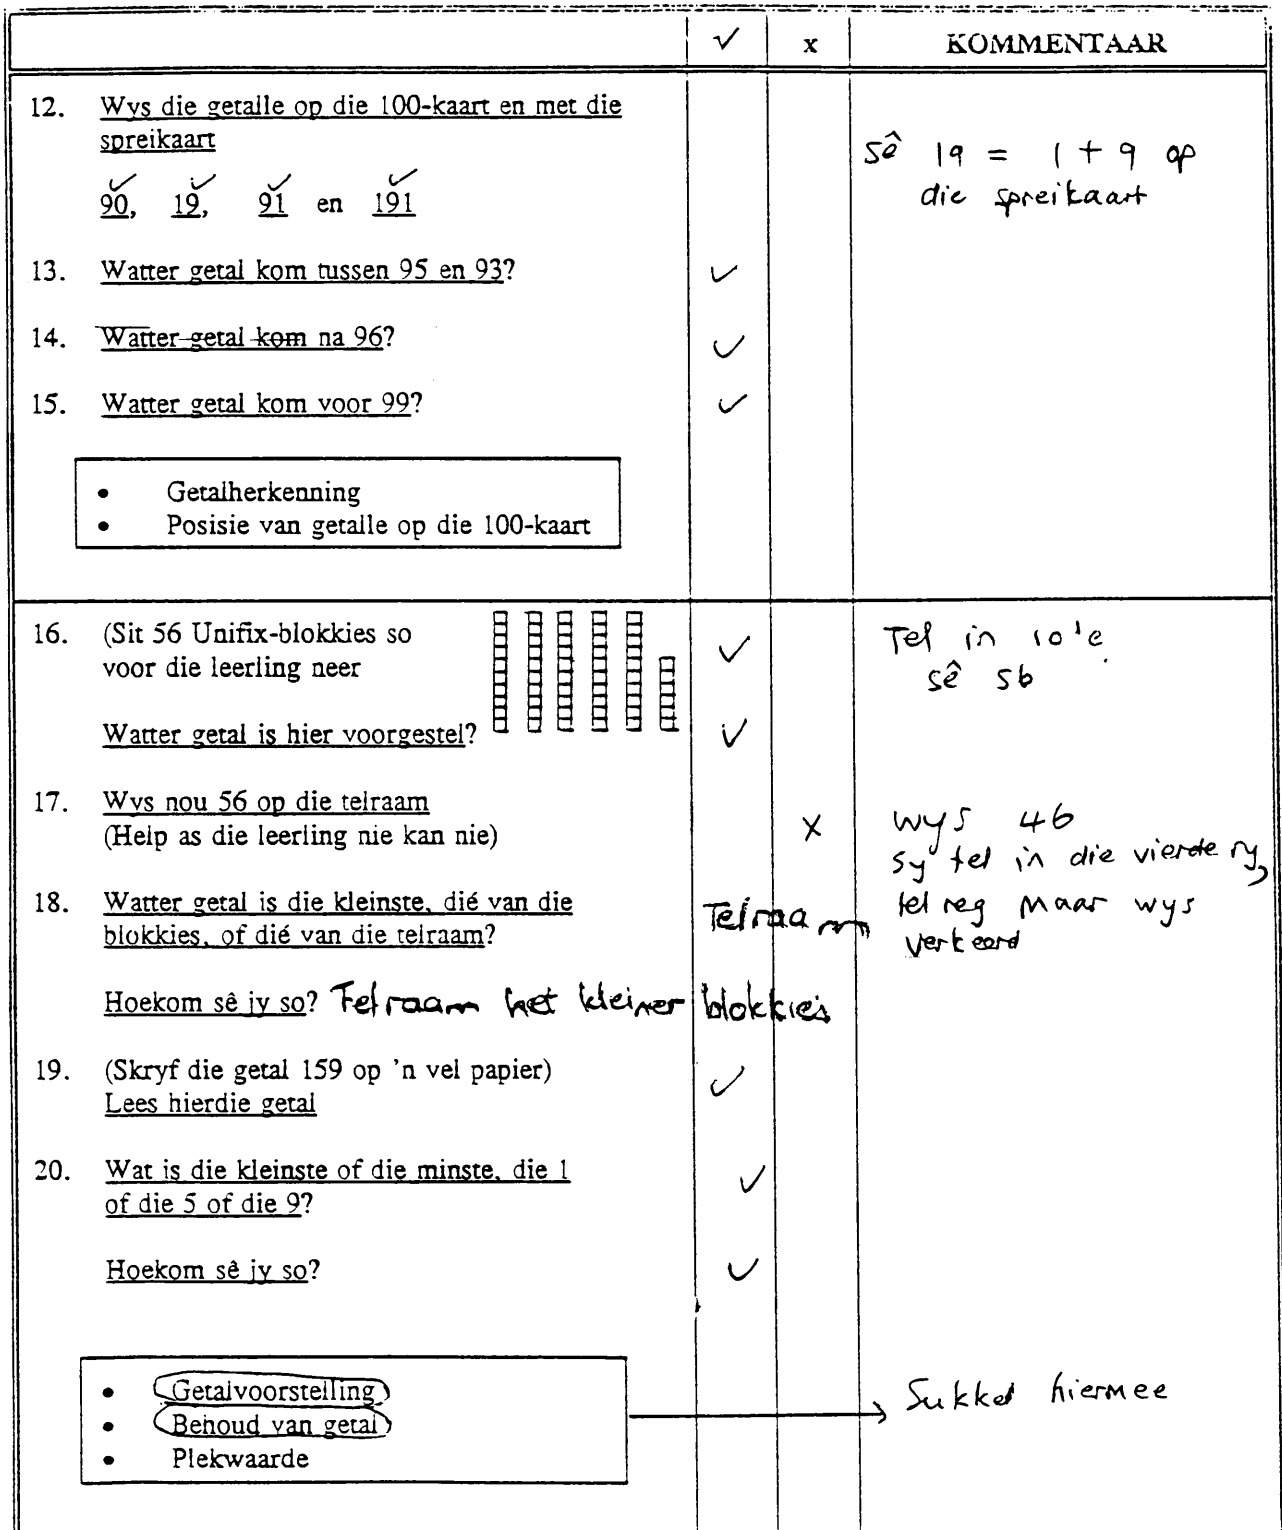 ✓ x KOMMENTAAR
12. Wys die getalle op die 100-kaart en met die
spreikaart
90, 19, 91 en 191
sê 19 = 1 + 9 op
die spreikaart
13. Watter getal kom tussen 95 en 93? ✓
14. Watter getal kom na 96? ✓
15. Watter getal kom voor 99? ✓
• Getalherkenning
• Posisie van getalle op die 100-kaart
16. (Sit 56 Unifix-blokkies so ✓
voor die leerling neer
Tel in 10'e
sê 56
Watter getal is hier voorgestel? ✓
17. Wys nou 56 op die telraam
(Help as die leerling nie kan nie) x
wys 46
sy tel in die vierde ry,
tel reg maar wys
verkeerd
18. Watter getal is die kleinste, dié van die
blokkies, of dié van die telraam?
Telraam
Hoekom sê jy so? Telraam het kleiner blokkies
19. (Skryf die getal 159 op 'n vel papier) ✓
Lees hierdie getal
20. Wat is die kleinste of die minste, die 1 ✓
of die 5 of die 9?
Hoekom sê jy so? ✓
• Getalvoorstelling
• Behoud van getal
• Plekwaarde
Sukkel hiermee